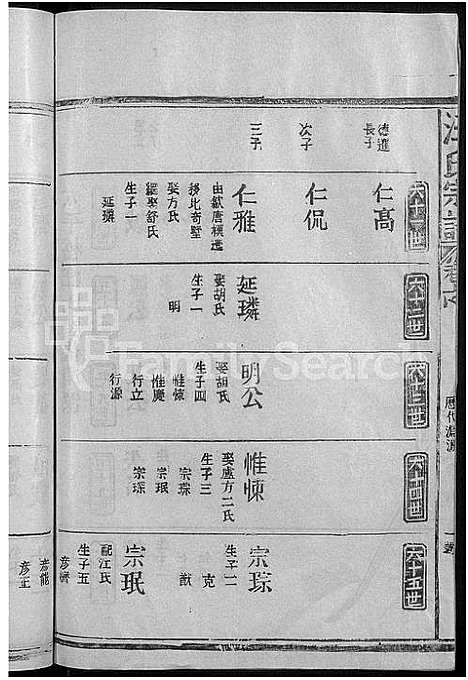 汪氏宗譜
歷代淵源
六十一世
德進
長子
仁高
次子
仁侃
三子
仁雅
由歙唐模遷
移比奇墅
娶方氏
繼娶舒氏
生子一
延璘
六十二世
延璘
娶胡氏
生子一
明
六十三世
明公
娶胡氏
生子四
惟悚
惟慶
行立
行源
六十四世
惟悚
娶盧方二氏
生子三
宗琮
宗珉
宗琛
六十五世
宗琮
生子二
克
猷
宗珉
配江氏
生子五
彥齊
彥能
彥正
FamilySearch